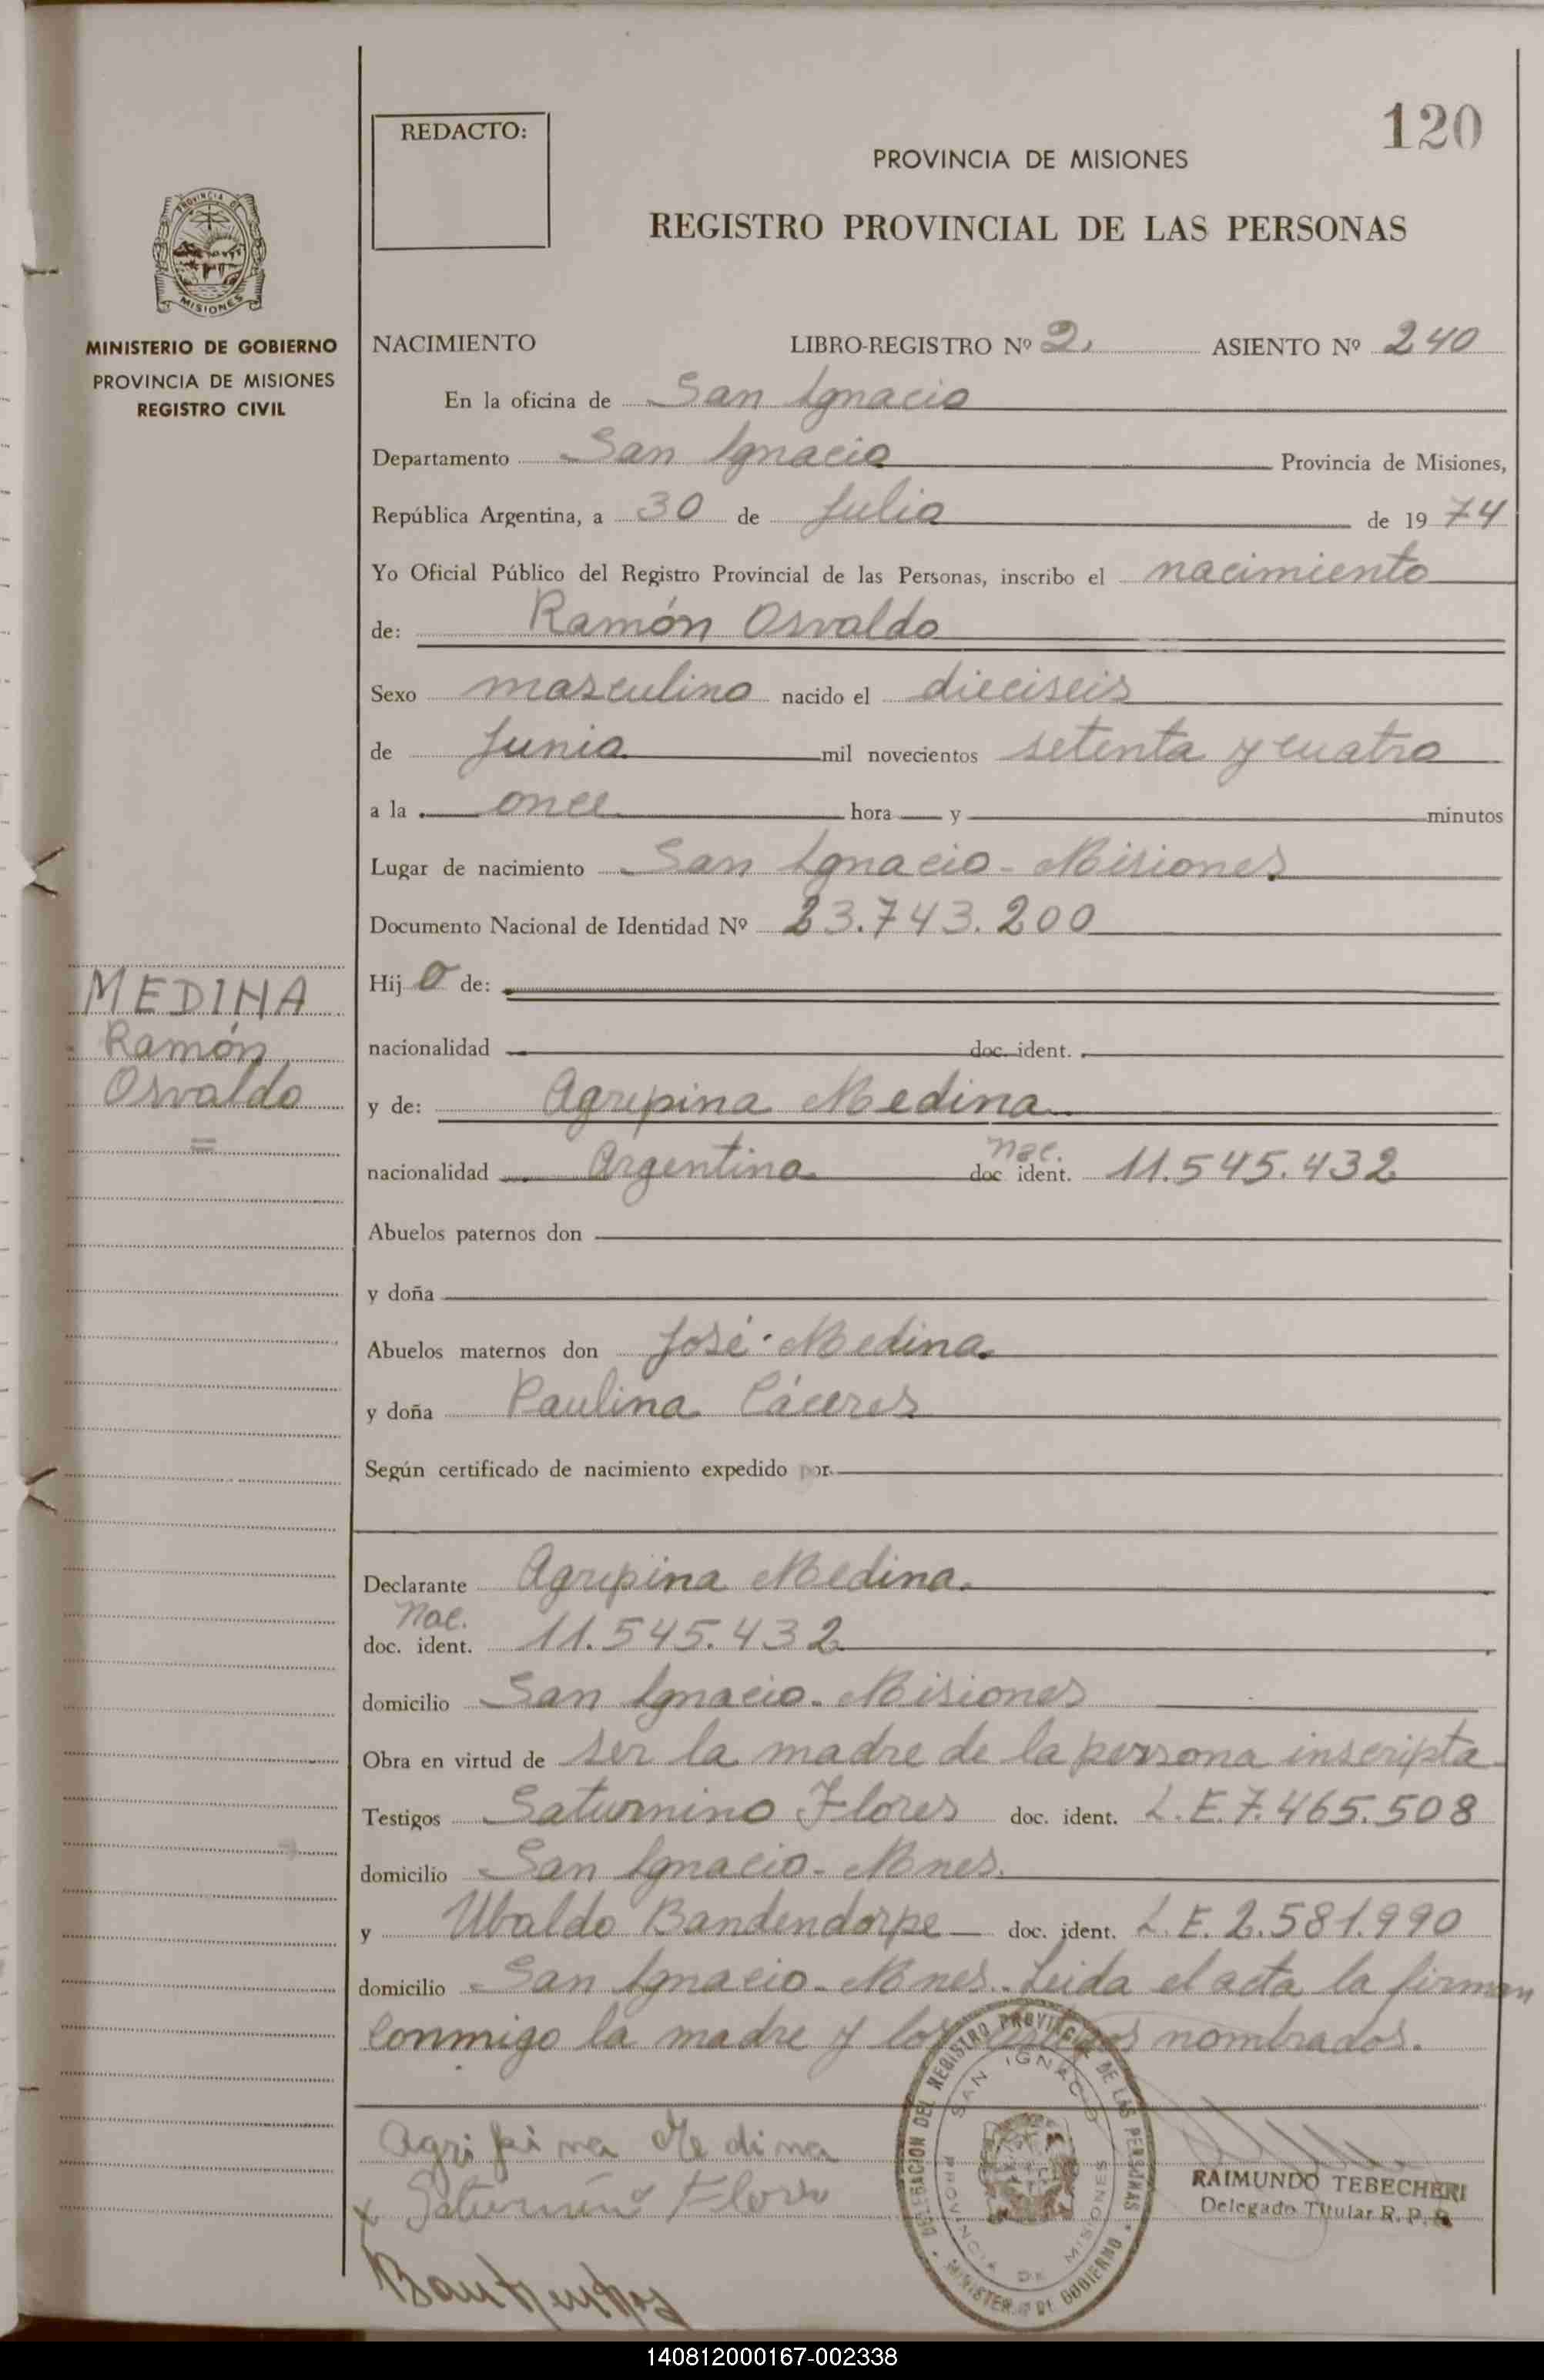 REDACTO:
120
PROVINCIA DE MISIONES
REGISTRO PROVINCIAL DE LAS PERSONAS
PROVINCIA DE
MISIONES
MINISTERIO DE GOBIERNO
PROVINCIA DE MISIONES
REGISTRO CIVIL
NACIMIENTO LIBRO-REGISTRO Nº 2. ASIENTO Nº 240
En la oficina de San Ignacio
Departamento San Ignacio Provincia de Misiones,
República Argentina, a 30 de Julio de 1974
Yo Oficial Público del Registro Provincial de las Personas, inscribo el nacimiento
de: Ramón Osvaldo
Sexo masculino nacido el dieciseis
de Junio mil novecientos setenta y cuatro
a la once hora y minutos
Lugar de nacimiento San Ignacio - Misiones
Documento Nacional de Identidad Nº 23.743.200
MEDINA
Ramón
Osvaldo
=
Hijo de:
nacionalidad doc. ident.
y de: Agripina Medina
nac.
nacionalidad Argentina doc ident. 11.545.432
Abuelos paternos don
y doña
Abuelos maternos don José Medina
y doña Paulina Cáceres
Según certificado de nacimiento expedido por
Declarante Agripina Medina.
nac.
doc. ident. 11.545.432
domicilio San Ignacio. Misiones
Obra en virtud de ser la madre de la persona inscripta
Testigos Saturnino Flores doc. ident. L.E.7.465.508
domicilio San Ignacio - Mnes.
y Ubaldo Bandendorpe doc. ident. L.E. 2.581.990
domicilio San Ignacio - Mnes. Leida el acta la firman
conmigo la madre y los testigos nombrados.
Agripina Medina
x Saturnino Flores
DELEGACION DEL REGISTRO PROVINCIAL DE LAS PERSONAS
SAN IGNACIO
PROVINCIA DE MISIONES
MINISTERIO DE GOBIERNO
RAIMUNDO TEBECHERI
Delegado Titular R. P. P.
140812000167-002338